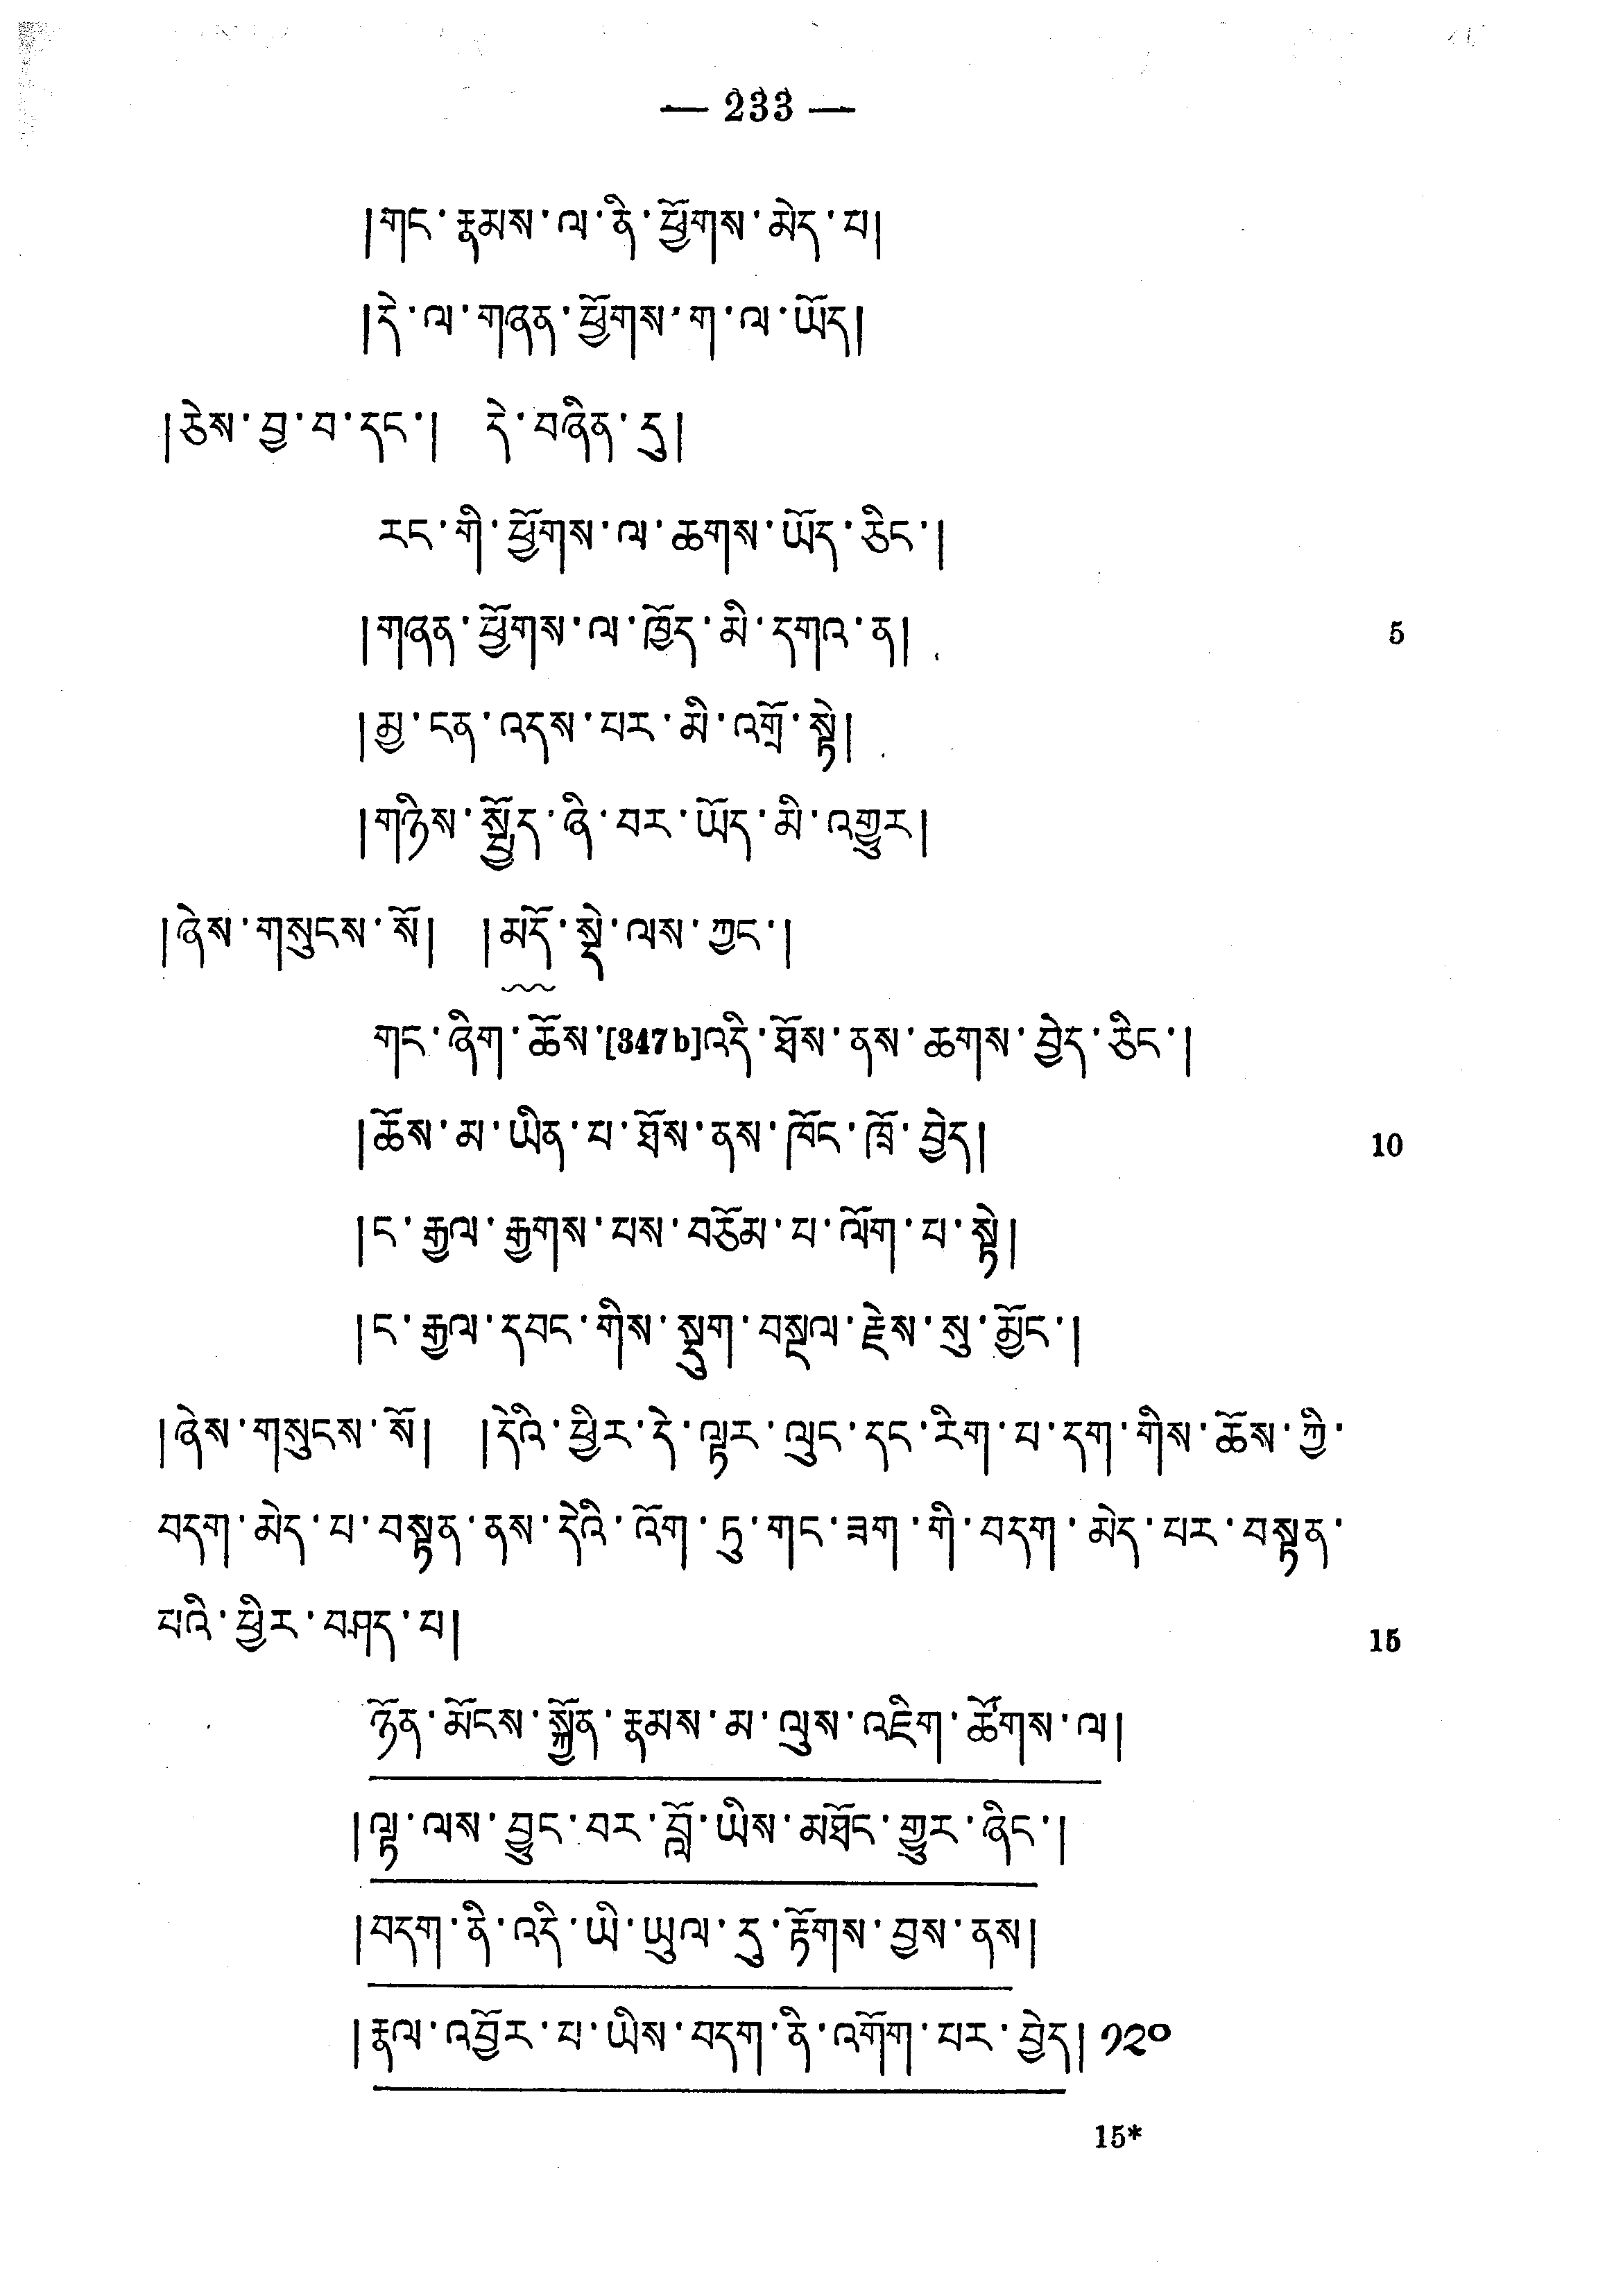 — 233 —
།གང་རྣམས་ལ་ནི་ཕྱོགས་མེད་པ།
།དེ་ལ་གཞན་ཕྱོགས་ག་ལ་ཡོད།
།ཅེས་བྱ་བ་དང་། དེ་བཞིན་དུ།
རང་གི་ཕྱོགས་ལ་ཆགས་ཡོད་ཅིང་།
།གཞན་ཕྱོགས་ལ་ཁྱོད་མི་དགའ་ན། 5
།མྱ་ངན་འདས་པར་མི་འགྲོ་སྟེ།
།གཉིས་སྤྱོད་ཞི་བར་ཡོད་མི་འགྱུར།
།ཞེས་གསུངས་སོ། །མདོ་སྡེ་ལས་ཀྱང་།
གང་ཞིག་ཆོས་[347b]འདི་ཐོས་ནས་ཆགས་བྱེད་ཅིང་།
།ཆོས་མ་ཡིན་པ་ཐོས་ནས་ཁོང་ཁྲོ་བྱེད། 10
།ང་རྒྱལ་རྒྱགས་པས་བཅོམ་པ་ལོག་པ་སྟེ།
།ང་རྒྱལ་དབང་གིས་སྡུག་བསྔལ་རྗེས་སུ་མྱོང་།
།ཞེས་གསུངས་སོ། །དེའི་ཕྱིར་དེ་ལྟར་ལུང་དང་རིག་པ་དག་གིས་ཆོས་ཀྱི་
བདག་མེད་པ་བསྟན་ནས་དེའི་འོག་ཏུ་གང་ཟག་གི་བདག་མེད་པར་བསྟན་
པའི་ཕྱིར་བཤད་པ། 15
ཉོན་མོངས་སྐྱོན་རྣམས་མ་ལུས་འཇིག་ཚོགས་ལ།
།ལྟ་ལས་བྱུང་བར་བློ་ཡིས་མཐོང་གྱུར་ཞིང་།
།བདག་ནི་འདི་ཡི་ཡུལ་དུ་རྟོགས་བྱས་ནས།
།རྣལ་འབྱོར་པ་ཡིས་བདག་ནི་འགོག་པར་བྱེད། ༡༢༠
15*